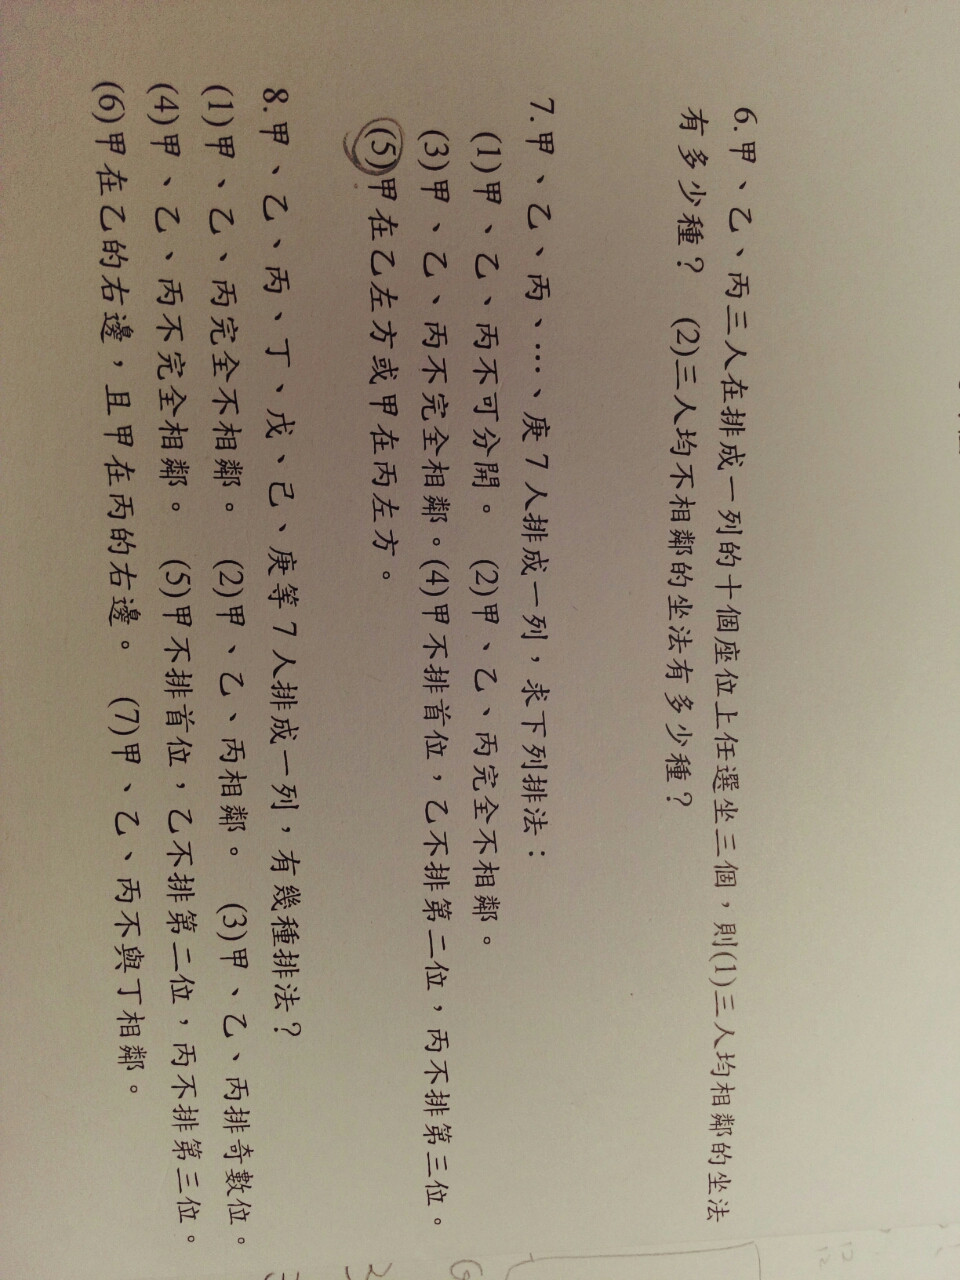 6. 甲、乙、丙三人在排成一列的十個座位上任選坐三個，則(1)三人均相鄰的坐法
有多少種？ (2)三人均不相鄰的坐法有多少種？
7. 甲、乙、丙、…、庚7人排成一列，求下列排法：
(1)甲、乙、丙不可分開。 (2)甲、乙、丙完全不相鄰。
(3)甲、乙、丙不完全相鄰。(4)甲不排首位，乙不排第二位，丙不排第三位。
(5)甲在乙左方或甲在丙左方。
8. 甲、乙、丙、丁、戊、己、庚等7人排成一列，有幾種排法？
(1)甲、乙、丙完全不相鄰。 (2)甲、乙、丙相鄰。 (3)甲、乙、丙排奇數位。
(4)甲、乙、丙不完全相鄰。 (5)甲不排首位，乙不排第二位，丙不排第三位。
(6)甲在乙的右邊，且甲在丙的右邊。 (7)甲、乙、丙不與丁相鄰。